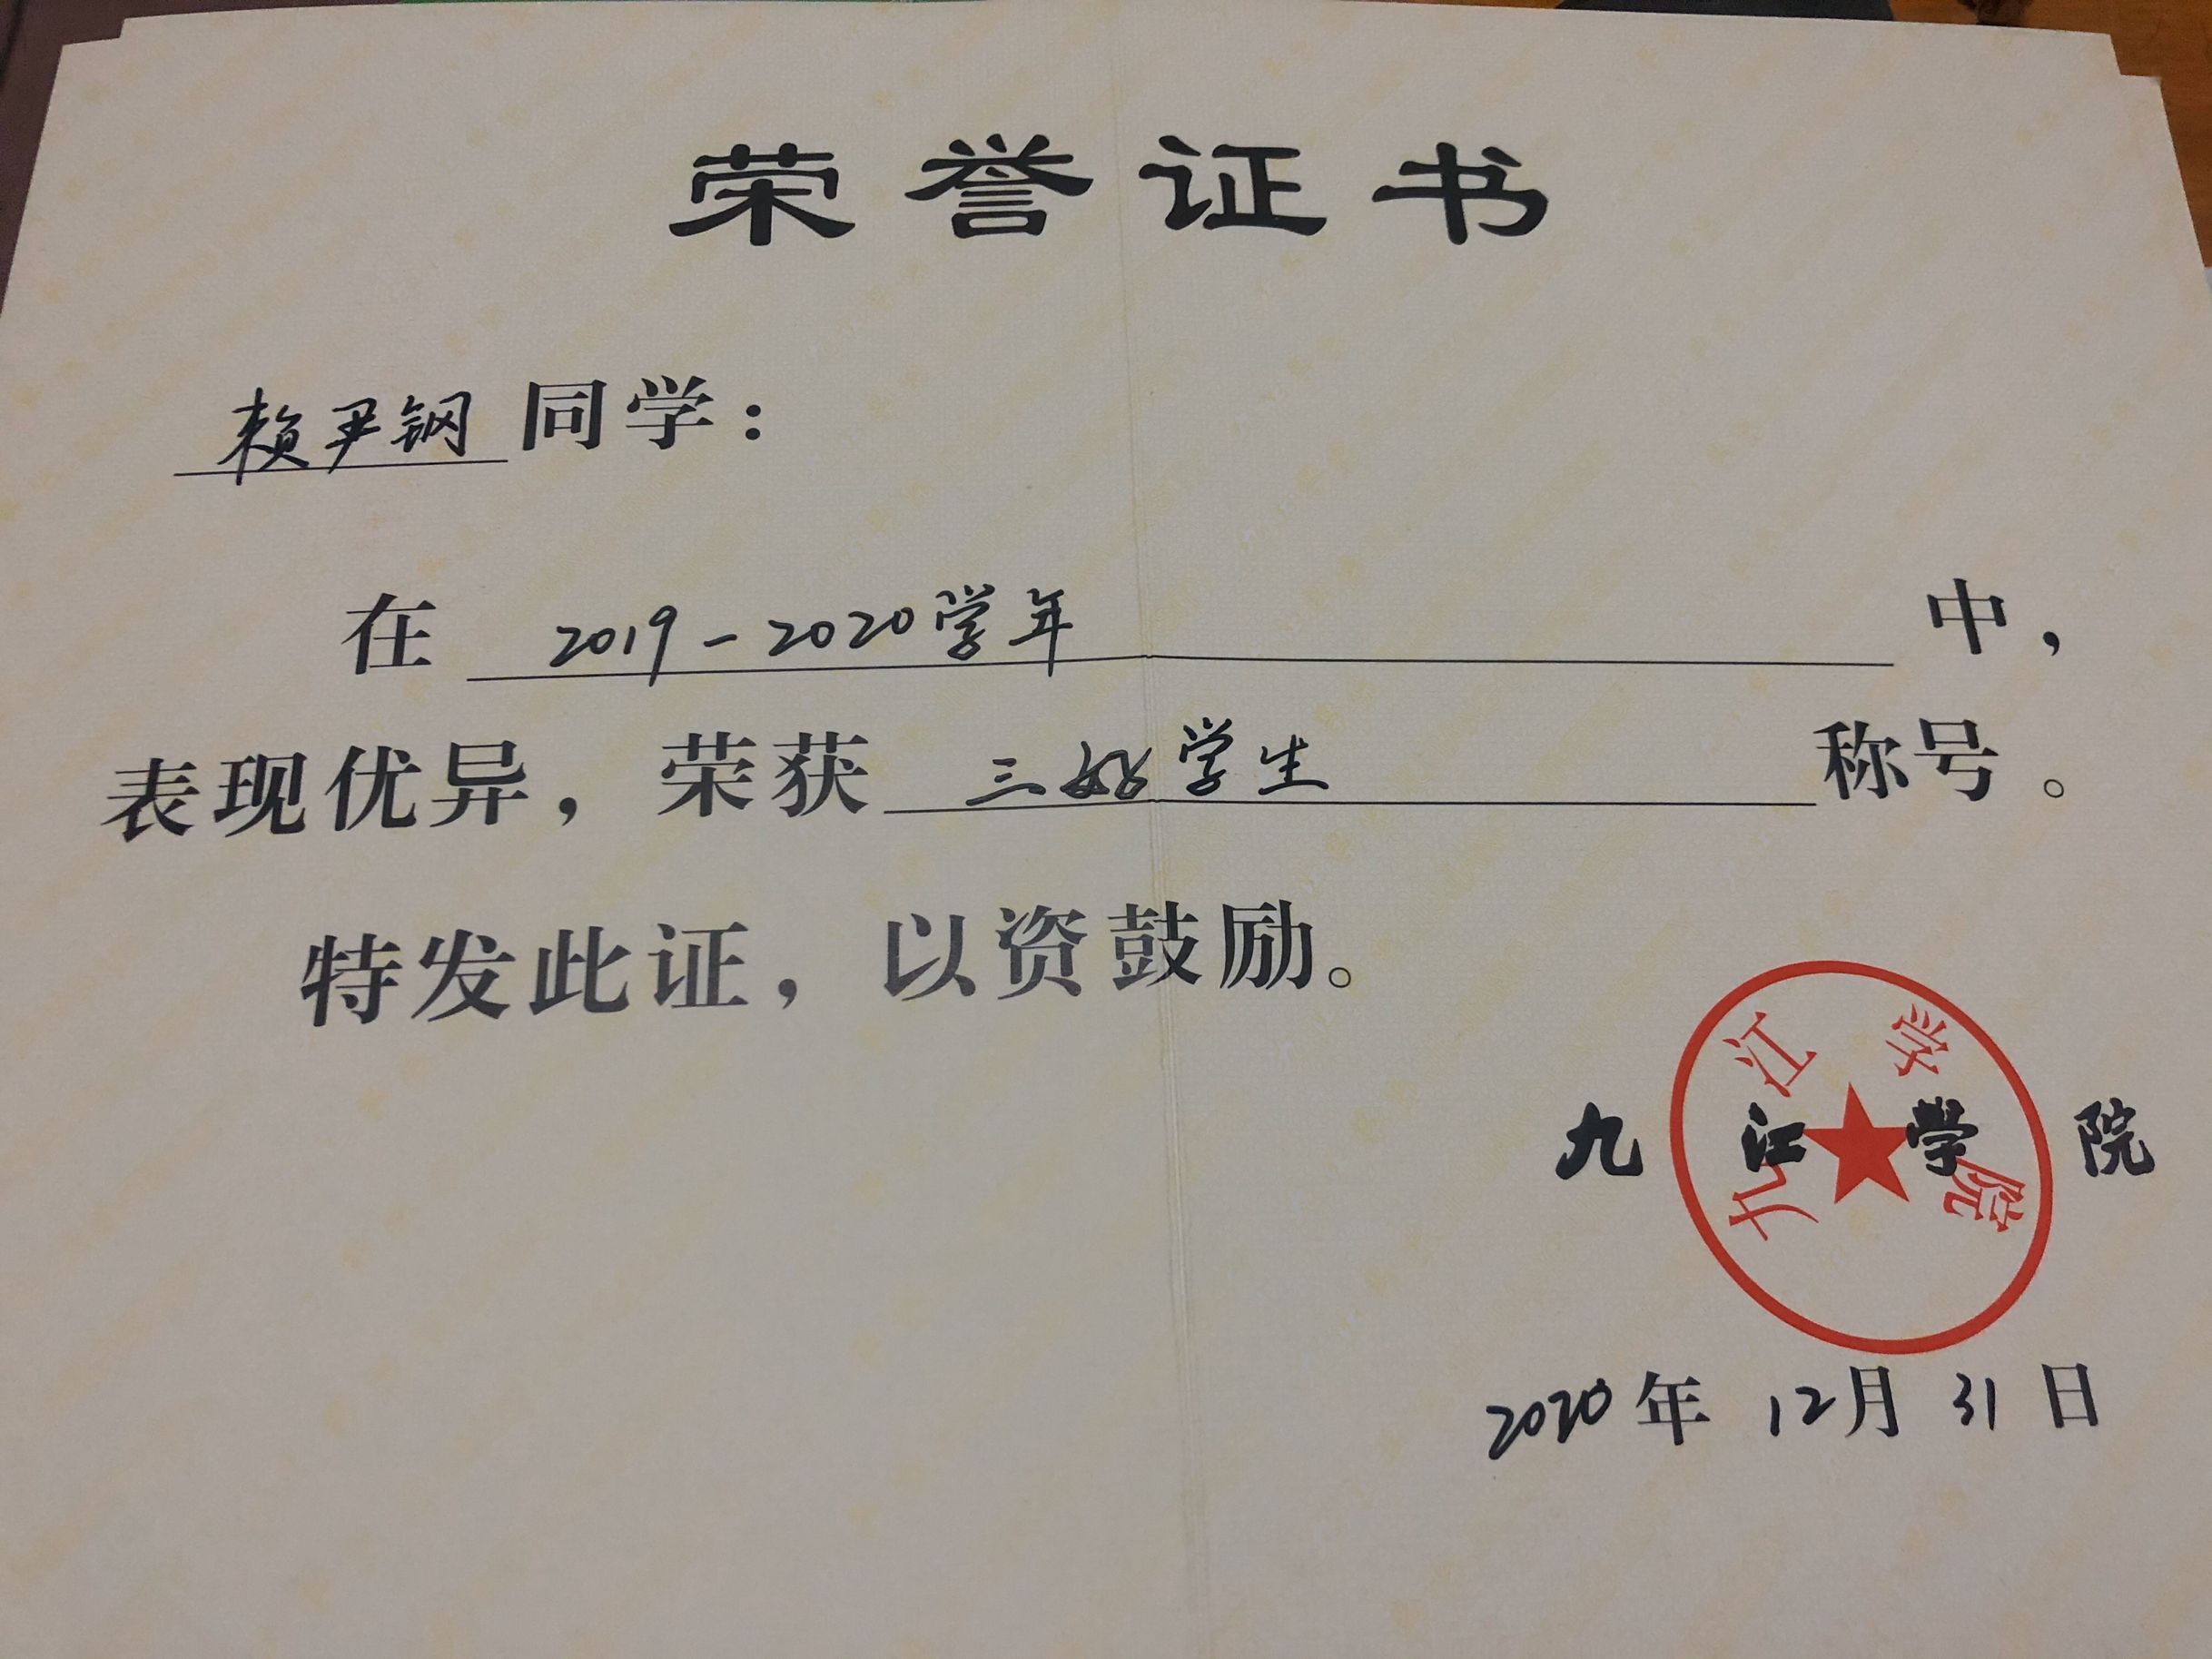 荣誉证书
赖尹钢同学:
在 2019-2020学年 中,
表现优异,荣获 三好学生 称号。
特发此证,以资鼓励。
九江学院
九江学院
2020年 12月 31日